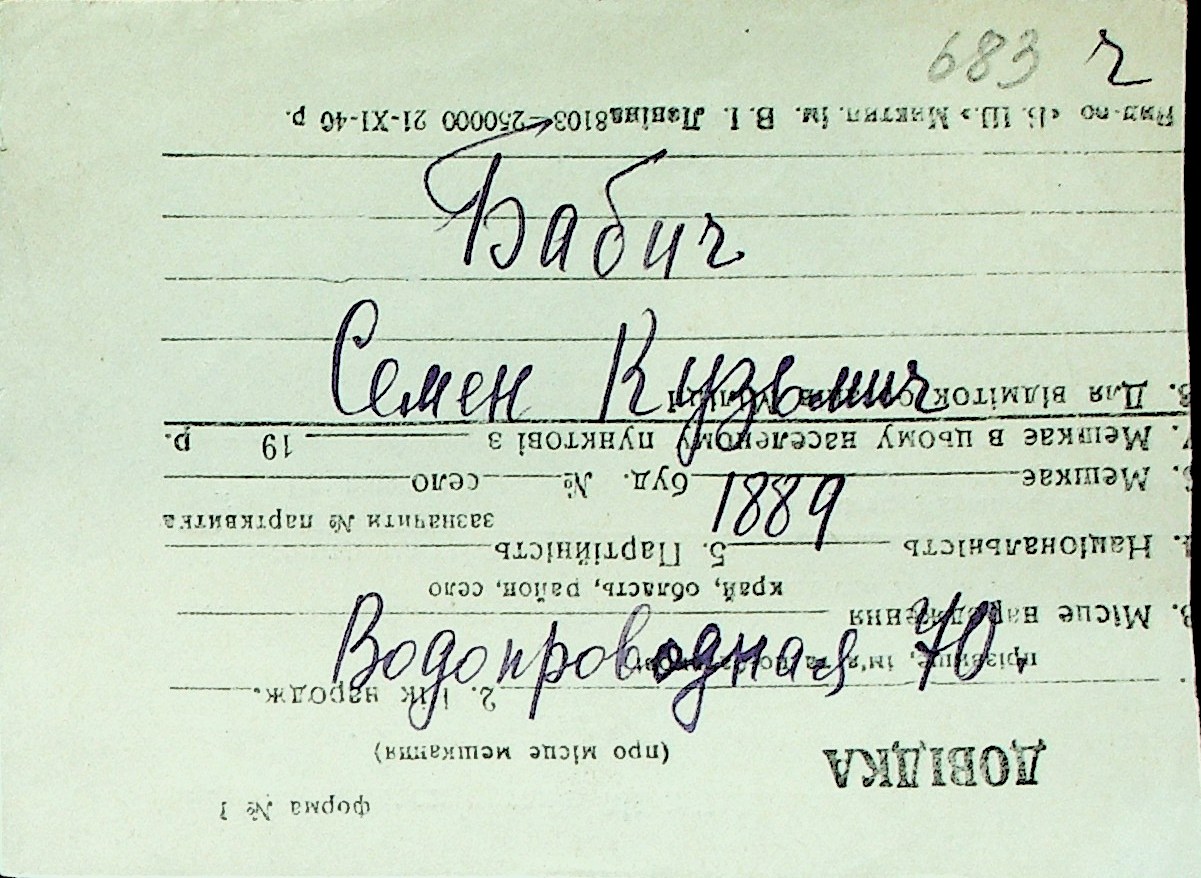 683 г
Бабич
Семен Кузьмич
1889
Водопроводная 70.
форма № 1
ДОВІДКА
(про місце мешкання)
2. Рік народж.
прізвище, ім'я та по
3. Місце народження
край, область, район, село
Національність 5. Партійність
зазначити № партквитка
Мешкає буд. № село
Мешкає в цьому населеному пункті з 19 р.
Для відміток органів міліції
«Б. Ш.» Миктип. ім. В. І. Леніна 8103—250000 21-XI-40 р.